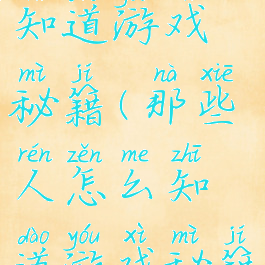 知道游戏
mì jí nà xiē
秘籍(那些
rén zěn me zhī
人怎么知
dào yóu xì mì jí
道游戏秘籍